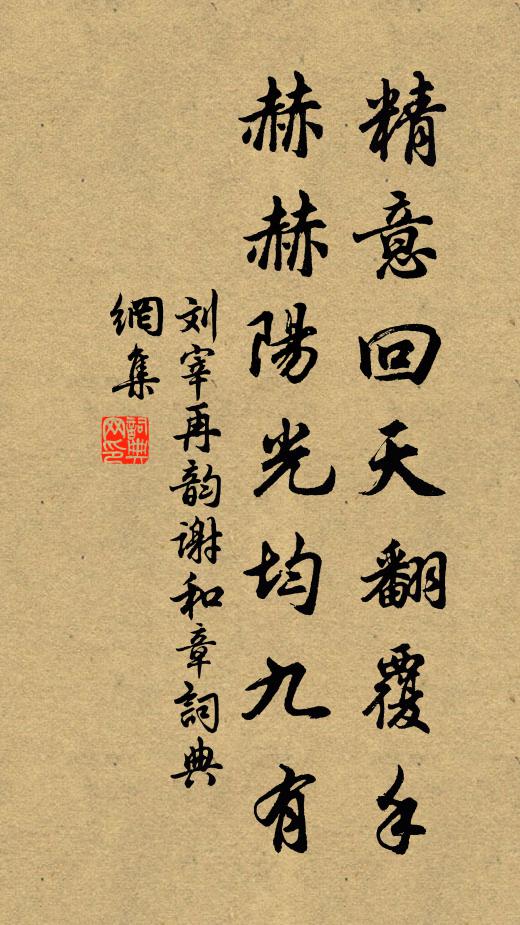 精意回天翻覆手
赫赫陽光均九有
刘宰再韵谢和章詞典
網集
詞典
网印